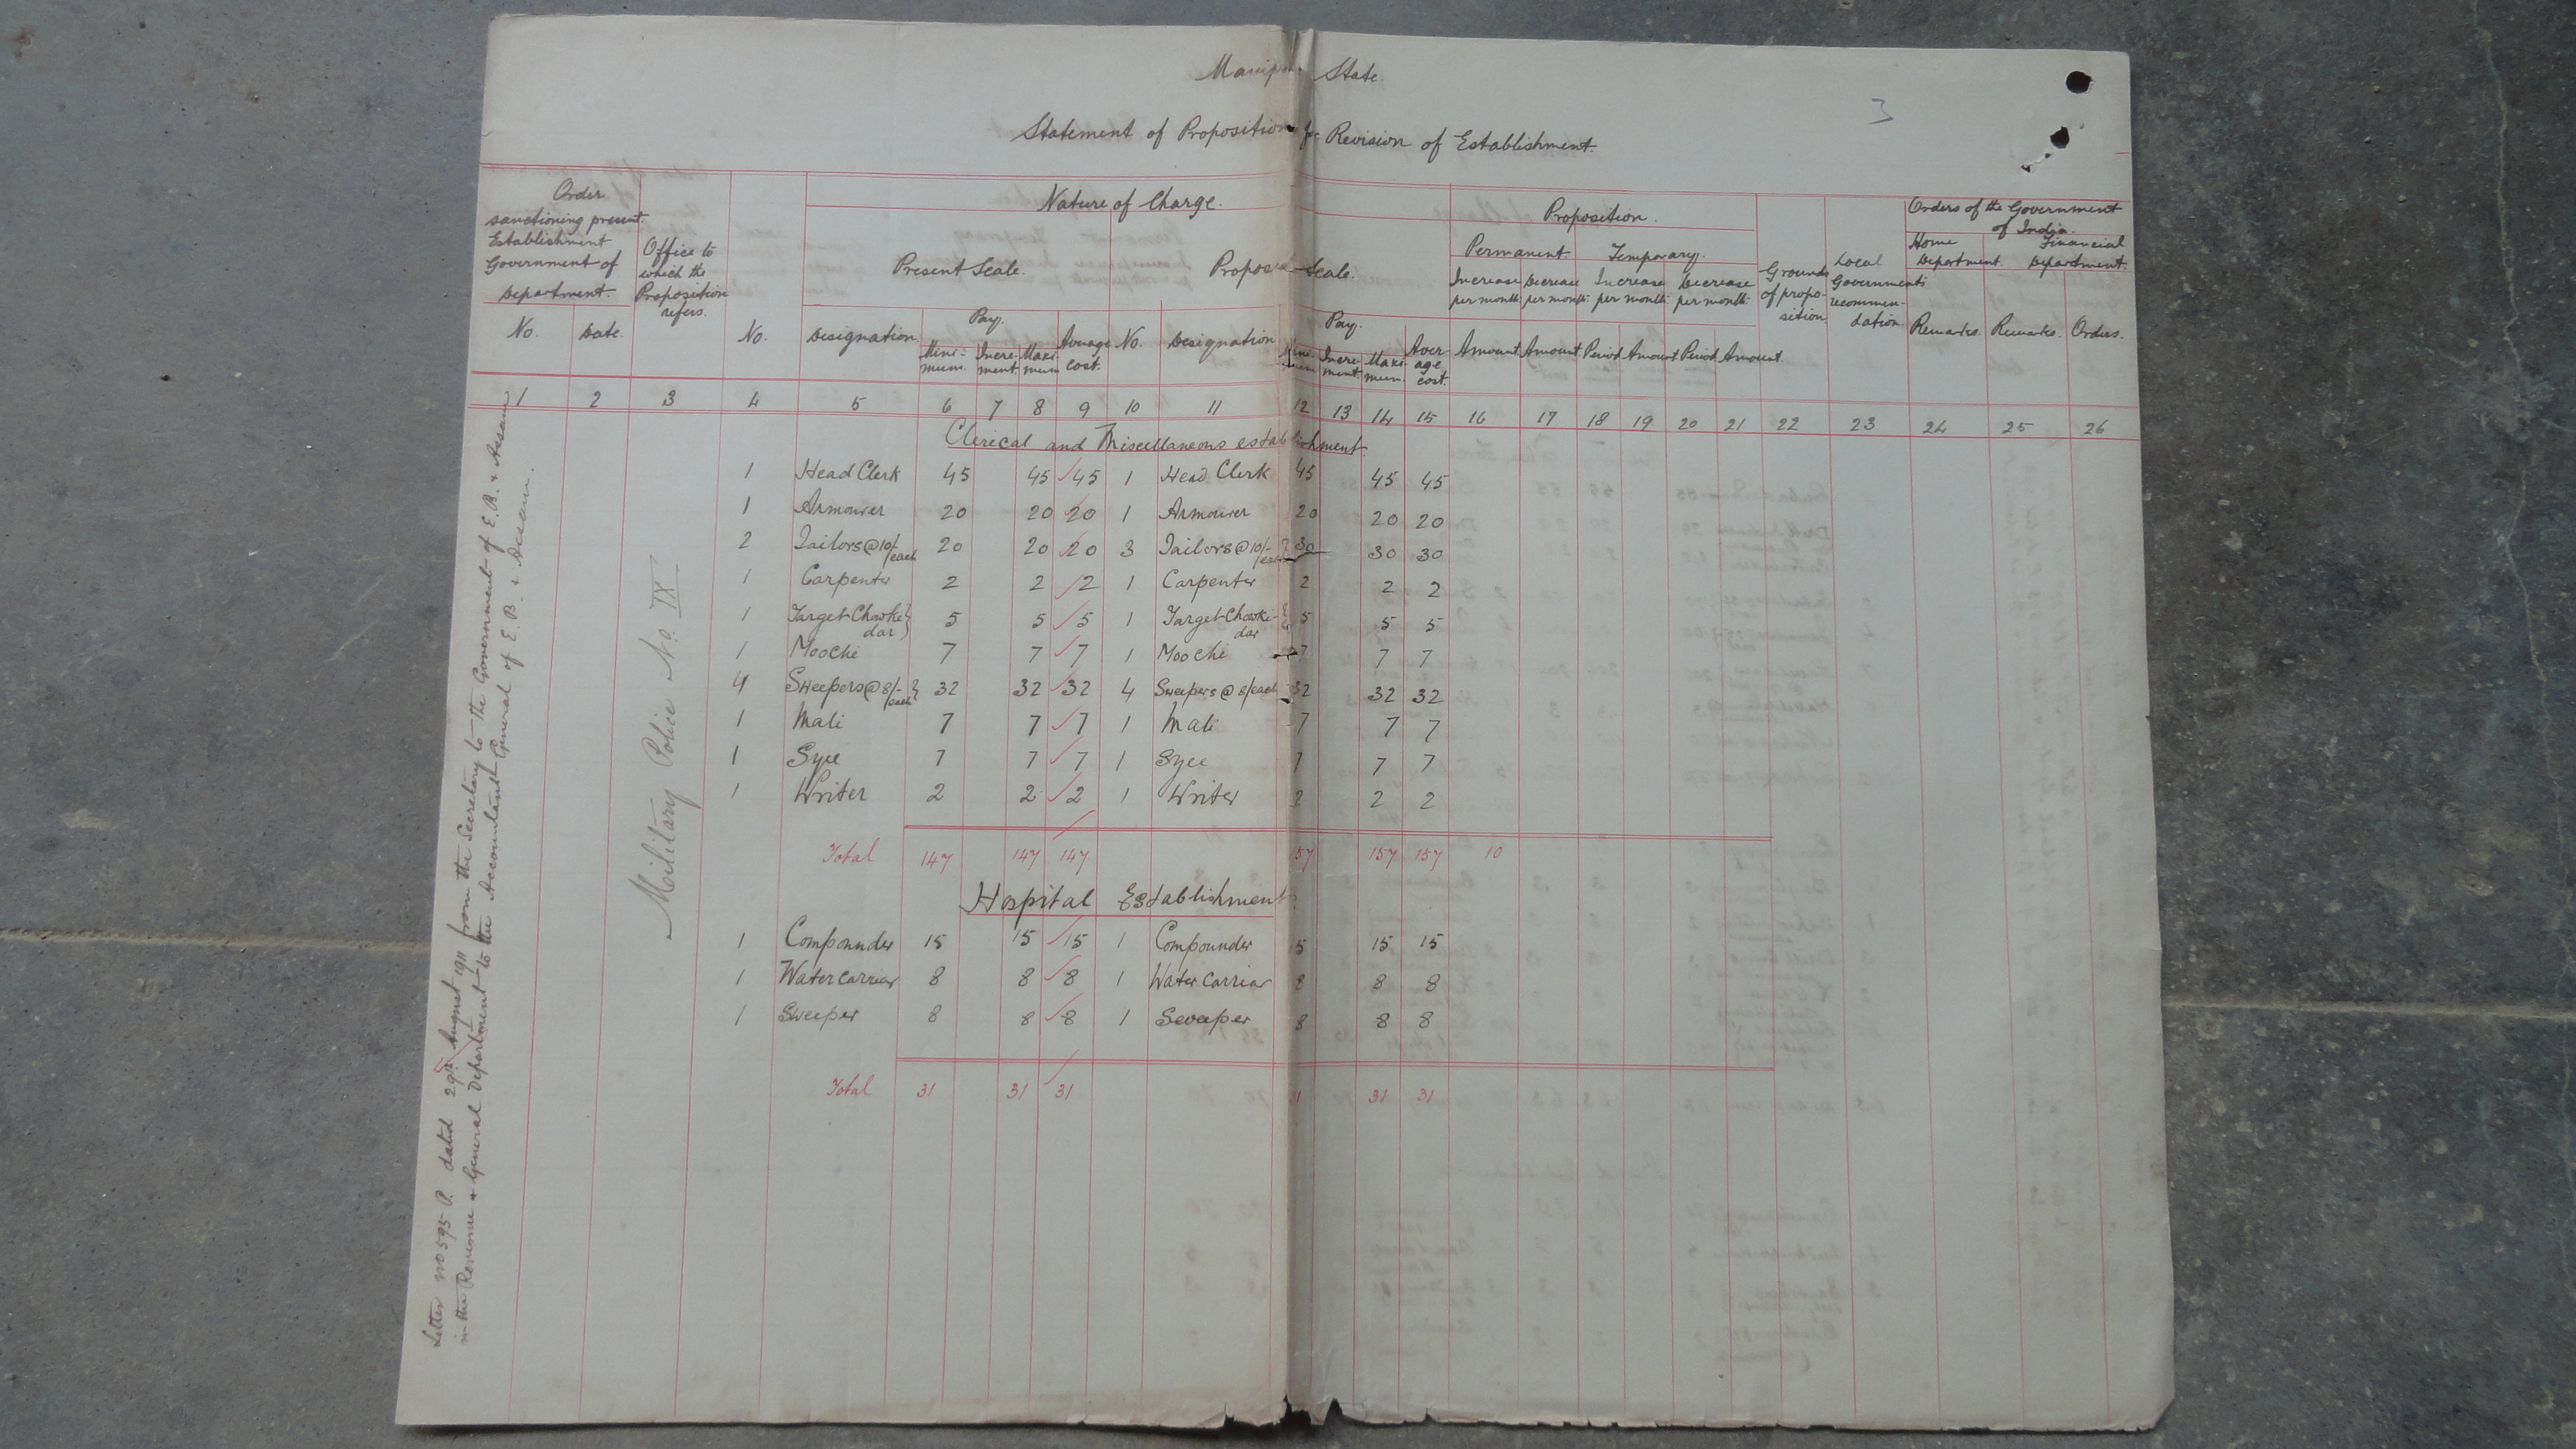 Manipur State.
3
Statement of Proposition for Revision of Establishment.
Order sanctioning present Establishment Government of Department.
Office to which the Proposition refers.
Nature of Charge.
Proposition.
Grounds of proposition.
Local Governments recommendation.
Orders of the Government of India.
Present Scale.
Proposed Scale.
Permanent. Temporary.
Home Department. Financial Department.
Increase per month. Decrease per month. Increase per month. Decrease per month.
No. Date. No. Designation. Pay. Average cost. No. Designation Pay. Average cost. Amount Amount Period Amount Period Amount. Remarks. Remarks. Orders.
Minimum. Increment. Maximum Minimum Increment. Maximum.
1 2 3 4 5 6 7 8 9 10 11 12 13 14 15 16 17 18 19 20 21 22 23 24 25 26
Clerical and Miscellaneous establishment
1 Head Clerk 45 45 45 1 Head Clerk 45 45 45
1 Armourer 20 20 20 1 Armourer 20 20 20
2 Tailors @ 10/- each 20 20 20 3 Tailors @ 10/- each 30 30 30
1 Carpenter 2 2 2 1 Carpenter 2 2 2
1 Target Chowkedar 5 5 5 1 Target Chowki-dar 5 5 5
1 Moochi 7 7 7 1 Moochi 7 7 7
4 Sweepers @ 8/- each 32 32 32 4 Sweepers @ 8/each 32 32 32
1 Mali 7 7 7 1 Mali 7 7 7
1 Syce 7 7 7 1 Syce 7 7 7
1 Writer 2 2 2 1 Writer 2 2 2
Total 147 147 147 157 157 157 10
Hospital Establishment
1 Compounder 15 15 15 1 Compounder 15 15 15
1 Water carriar 8 8 8 1 Water Carriar 8 8 8
1 Sweeper 8 8 8 1 Sweeper 8 8 8
Total 31 31 31 31 31 31
Military Police No. IX
Letter No 595 P. dated 29th August 1911 from the Secretary to the Government of E.B. & Assam
in the Revenue & General Department to the Accountant General of E.B. & Assam.